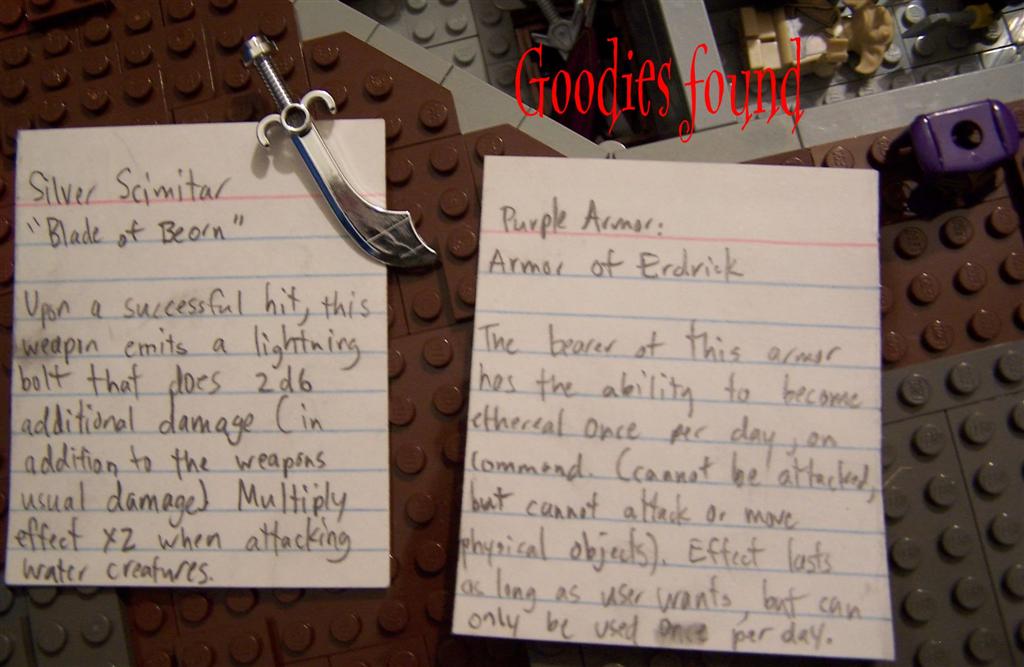 Goodies found
Silver Scimitar
"Blade of Beorn"
Upon a successful hit, this
weapon emits a lightning
bolt that does 2d6
additional damage (in
addition to the weapons
usual damage) Multiply
effect X2 when attacking
water creatures.
Purple Armor:
Armor of Erdrick
The bearer of this armor
has the ability to become
ethereal once per day, on
command. (cannot be attacked,
but cannot attack or move
physical objects). Effect lasts
as long as user wants, but can
only be used once per day.